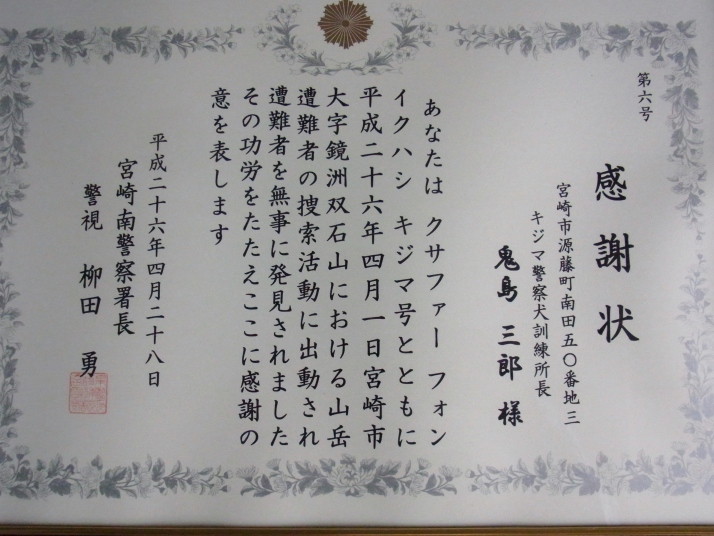 第六号
感謝状
宮崎市源藤町南田五〇番地三
キジマ警察犬訓練所長
鬼島 三郎 様
あなたは クサファー フォン
イクハシ キジマ号とともに
平成二十六年四月一日宮崎市
大字鏡洲双石山における山岳
遭難者の捜索活動に出動され
遭難者を無事に発見されました
その功労をたたえここに感謝の
意を表します
平成二十六年四月二十八日
宮崎南警察署長
警視 柳田 勇